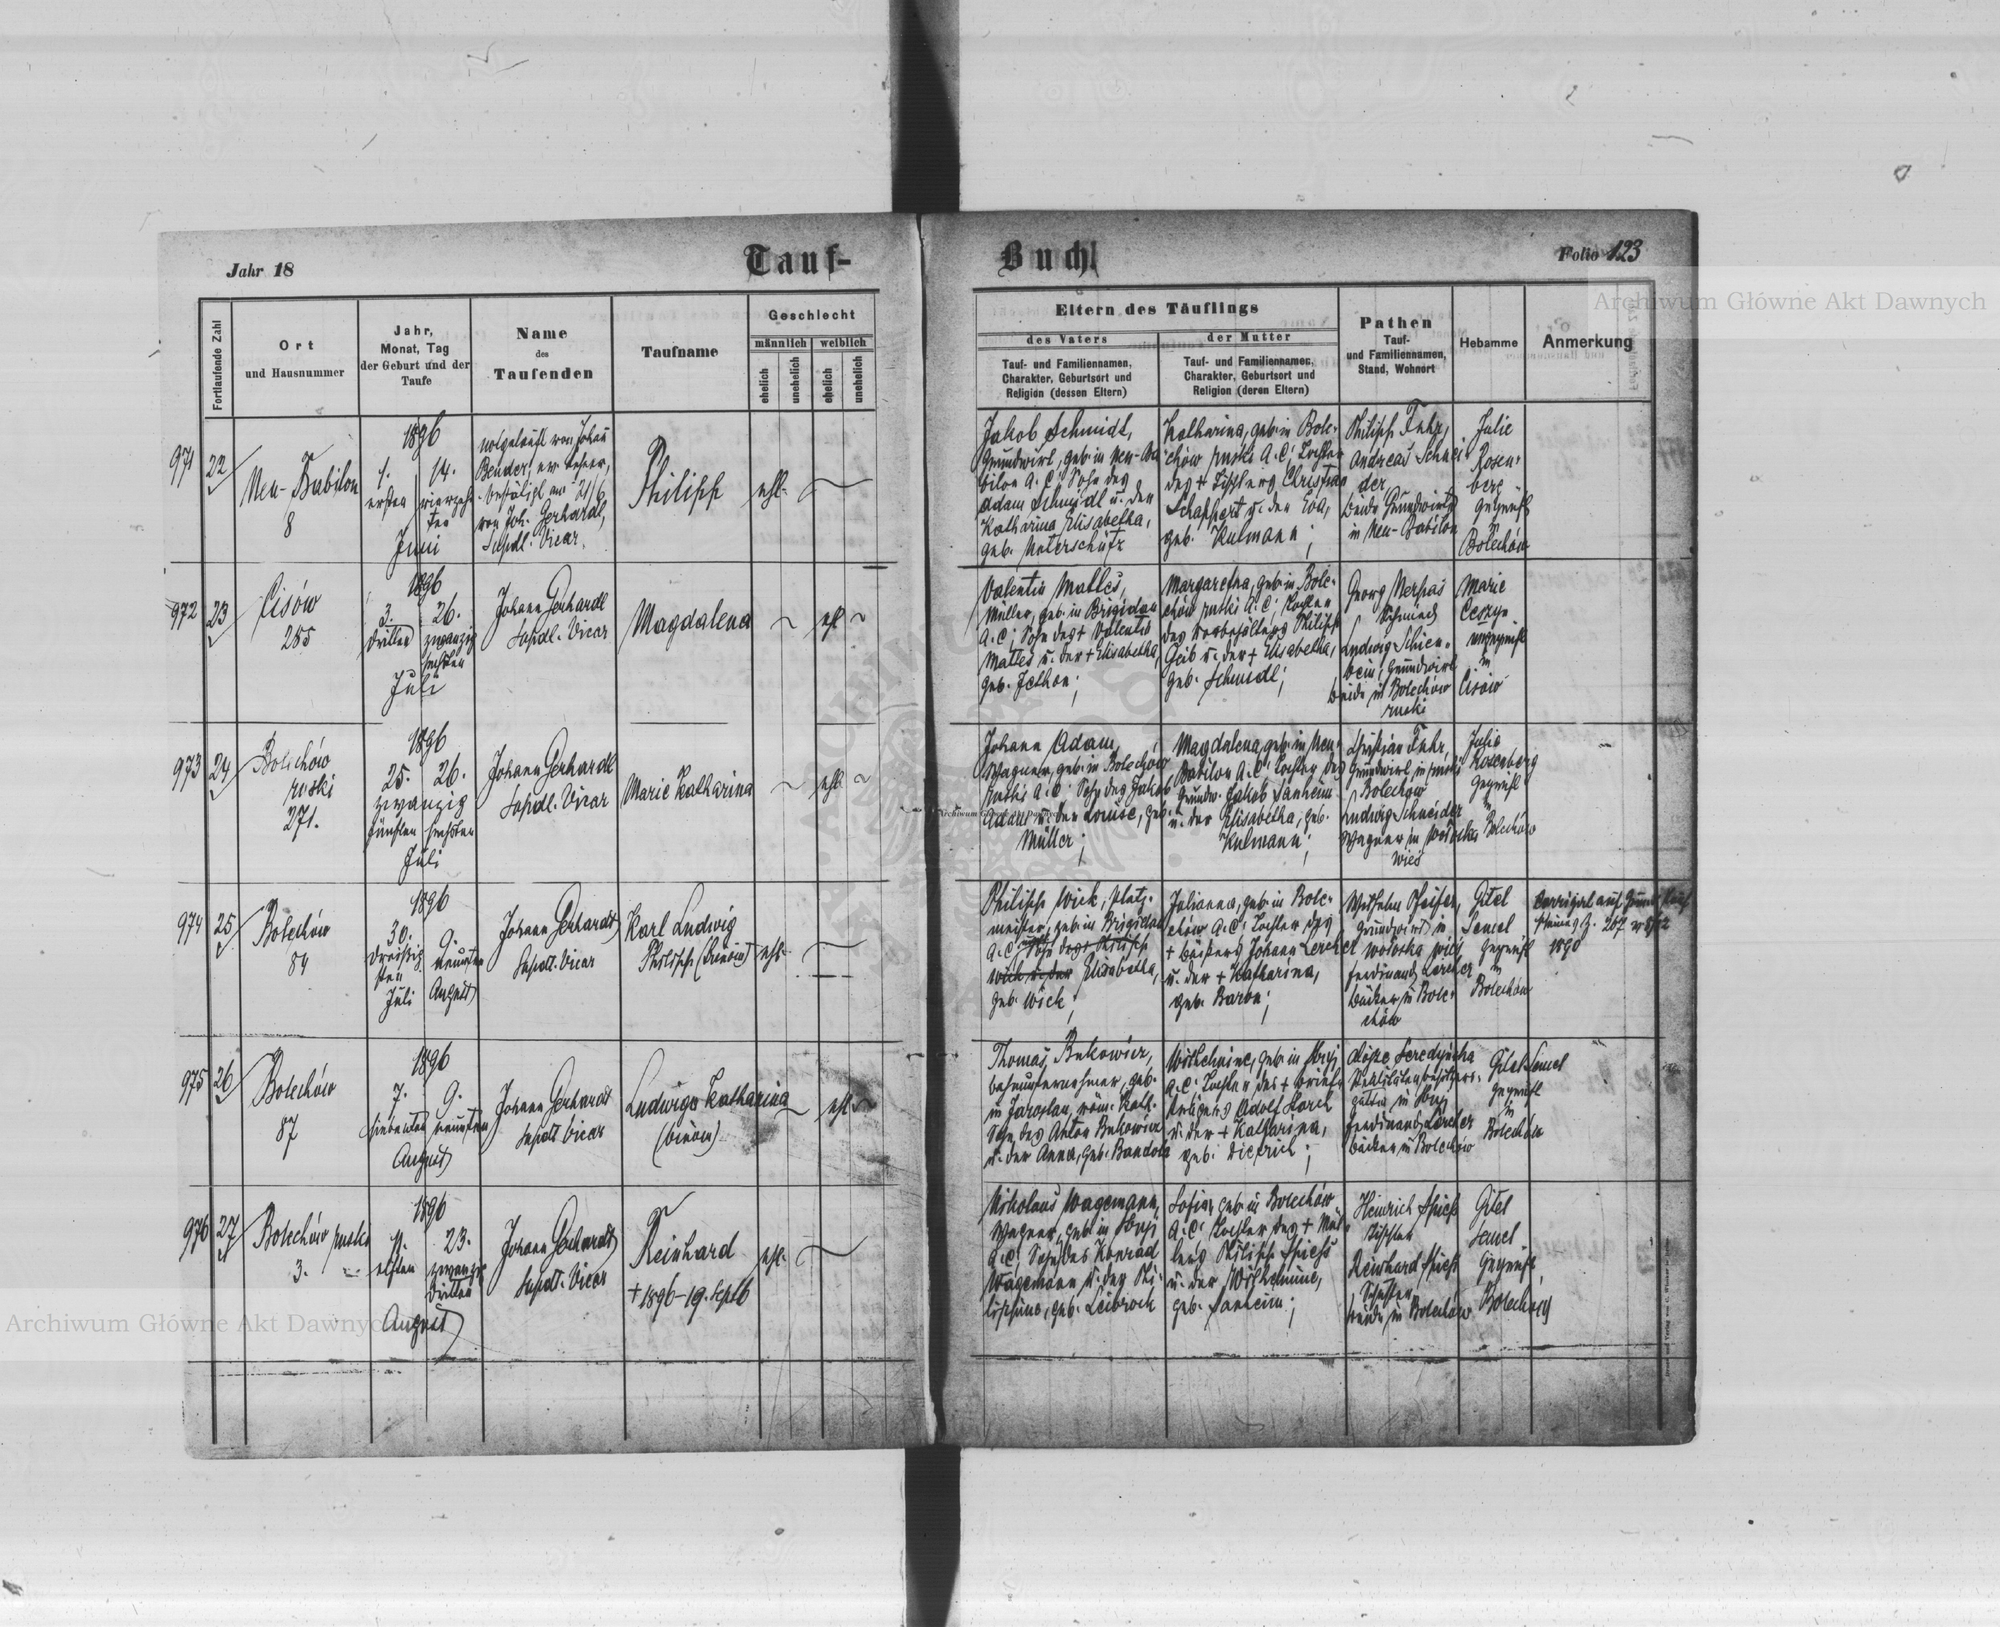 Tauf-Buch.
Jahr 18
Folio 123
Archiwum Główne Akt Dawnych
Fortlaufende Zahl
Ort
und Hausnummer
Jahr,
Monat, Tag
der Geburt und der
Taufe
Name
des
Taufenden
Taufname
Geschlecht
männlich
weiblich
ehelich
unehelich
ehelich
unehelich
Eltern des Täuflings
des Vaters
Tauf- und Familiennamen,
Charakter, Geburtsort und
Religion (dessen Eltern)
der Mutter
Tauf- und Familiennamen,
Charakter, Geburtsort und
Religion (deren Eltern)
Pathen
Tauf-
und Familiennamen,
Stand, Wohnort
Hebamme
Anmerkung
971
22
Neu-Babilon
8
1896
1. 14.
ersten vierzehn
ten
Juni
notgetauft von Johann
Bender, ev. Lehrer,
bestätigt am 21/6
von Joh. Gerhardt,
Supdt. Vicar.
Philipp
ehl.
Jakob Schmidt,
Grundwirt, geb. in Neu-Ba
bilon A.C; Sohn des
Adam Schmidt u. der
Katharina Elisabetha,
geb. Unterschütz
Katharina, geb. in Bole-
chów ruski A.C; Tochter
des + Tischlers Christian
Schappert u. der Eva,
geb. Kulmann;
Philipp Fuhr,
Andreas Schnei
der
beide Grundwirte
in Neu-Babilon
Julie
Rosen-
berg
geprüft
in
Bolechów
972
23
Cisów
255
1896
3. 26.
dritten zwanzig
sechsten
Juli
Johann Gerhardt
Supdt. Vicar
Magdalena
ehl.
Valentin Mattes,
Müller, geb. in Brigidau
A.C; Sohn des + Valentin
Mattes u. der + Elisabetha,
geb. Jethon;
Margaretha, geb. in Bole-
chów ruski A.C; Tochter
des Philipp
Geib u. der + Elisabetha,
geb. Schmidt;
Georg
Schmied
Ludwig Schien-
bein, Grundwirt
beide in Bolechów
ruski
Marie
ungeprüft
in
Cisów
973
24
Bolechów
ruski
271.
1896
25. 26.
zwanzig
fünften sechsten
Juli
Johann Gerhardt
Supdt. Vicar
Marie Katharina
ehl.
Johann Adam,
Wagner, geb. in Bolechów
ruski A.C; Sohn des Jakob
Adam u. der Louise, geb.
Müller;
Magdalena, geb. in Neu-
Babilon A.C; Tochter des
Grundw. Jakob Manheim
u. der Elisabetha, geb.
Kulmann;
Christian Fuhr,
Grundwirt, in ruski
Bolechow
Ludwig Schneider
Wagner in Wołoska
wieś
Julie
Rosenberg
geprüft
in
Bolechów
974
25
Bolechów
84
1896
30. 9.
dreissig neunten
sten
Juli August
Johann Gerhardt
Supdt. Vicar
Karl Ludwig
Philipp (trinom)
ehl.
Philipp Wick, Platz-
meister, geb. in Brigidau
A.C; Sohn des + Philipp
Wick u. der Elisabetha,
geb. Wick;
Julianna, geb. in Bole-
chów A.C; Tochter des
+ Bäckers Johann Lercher
u. der + Katharina,
geb. Baron;
Wilhelm Pfeifer,
Grundwirt in
Wołoska wieś
Ferdinand Lercher
Bäcker in Bole-
chów
Gitel
Semel
geprüft
in
Bolechów
Corrigirt auf Grund
1890
975
26
Bolechów
87
1896
7. 9.
siebenten neunten
August
Johann Gerhardt
Supdt. Vicar
Ludwiga Katharina
(binom)
ehl.
Thomas Bukowicz,
geb.
in Jaroslau, röm. kath.
Sohn des Anton Bukowicz
u. der Anna, geb. Bandola
Wilhelmine, geb. in Stryj
A.C; Tochter des + Brief-
trägers Adolf Storch
u. der + Katharina,
geb. Dietrich;
Realitätenbesitzers-
gattin in Stryj
Ferdinand Lercher
Bäcker in Bolechów
Gitel Semel
geprüft
in
Bolechów
976
27
Bolechów ruski
3.
1896
11. 23.
elften zwanzig
dritten
August
Johann Gerhardt
Supdt. Vicar
Reinhard
+ 1896-19. Septb
ehl.
Nikolaus Wagemann,
Wagner, geb. in Stryj
A.C; Sohn des Konrad
Wagemann u. der Phi-
lippine, geb. Leibrock
Sofia, geb. in Bolechów
A.C; Tochter des + Mül-
lers Philipp Spiess
u. der Wilhelmine,
geb. Manheim;
Heinrich Spiess
Tischler
Reinhard Spiess
beide in Bolechów
Gitel
Semel
geprüft,
Bolechów
Archiwum Główne Akt Dawnych